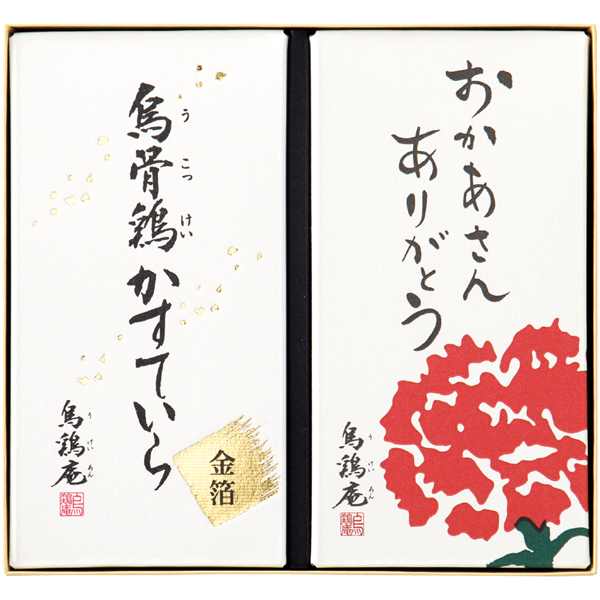 おかあさん
ありがとう
烏鶏庵
うけいあん
烏骨鶏かすていら
うこっけい
金箔
烏鶏庵
うけいあん